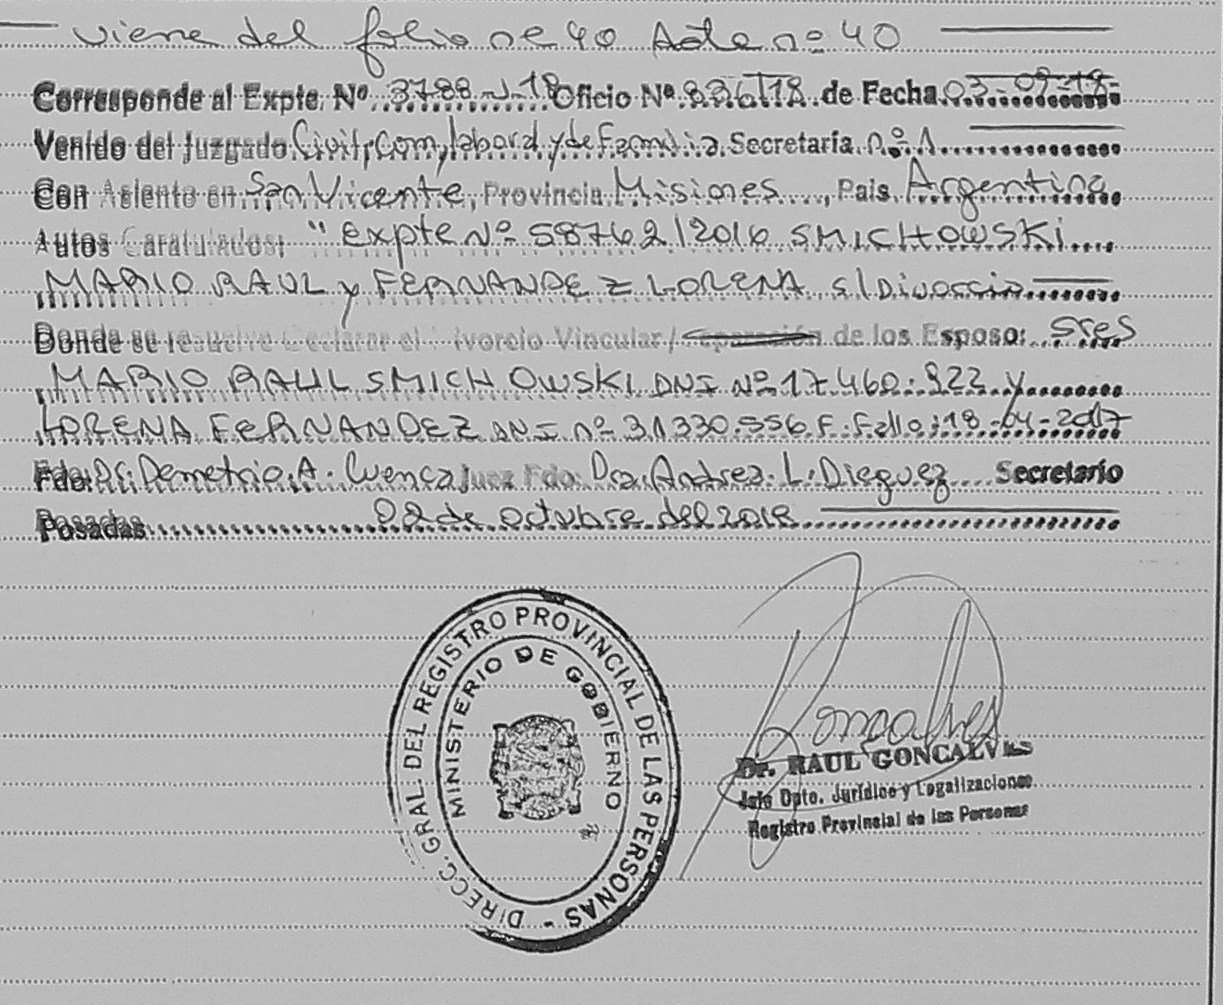 viene del folio nº 40 Acta nº 40
Corresponde al Expte. Nº 3788-J-18 Oficio Nº 836/18 de Fecha 03-09-18-
Venido del Juzgado Civil, Com, laboral y de Familia Secretaría nº 1
Con Asiento en San Vicente, Provincia Misiones, País Argentina
Autos Caratulados: "expte Nº 58762/2016 SMICHOWSKI
MARIO RAUL y FERNANDEZ LORENA s/Divorcio
Donde se resuelve Declarar el Divorcio Vincular/Separación de los Esposo: Sres
MARIO RAUL SMICHOWSKI DNI Nº 17.460.922 y
LORENA FERNANDEZ DNI nº 31.330.556 F. Fallo: 18-04-2017
Fdo: Dr. Demetrio A. Cuenca Juez Fdo: Dra. Andrea L. Dieguez Secretario
Posadas 02 de octubre del 2018
DIRECC. GRAL. DEL REGISTRO PROVINCIAL DE LAS PERSONAS -
MINISTERIO DE GOBIERNO
Goncalves
Dr. RAUL GONCALVES
Jefe Dpto. Jurídico y Legalizaciones
Registro Provincial de las Personas